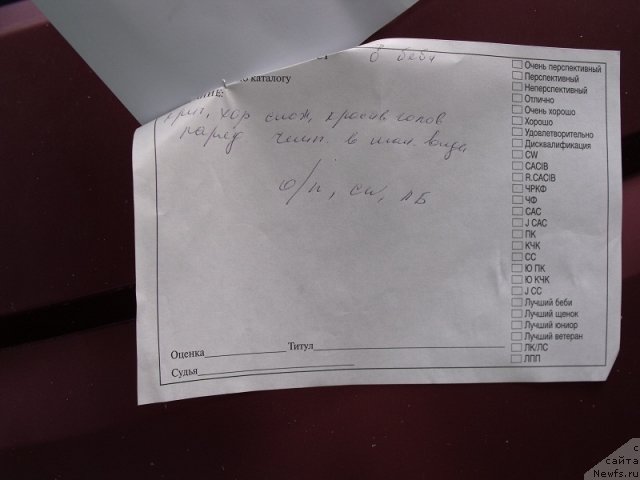 8 беби
каталогу
НИЕ:
хор слож, красив голов
перед
в
о/п, CW, ЛБ
Очень перспективный
Перспективный
Неперспективный
Отлично
Очень хорошо
Хорошо
Удовлетворительно
Дисквалификация
CW
CACIB
R.CACIB
ЧРКФ
ЧФ
CAC
J CAC
ПК
КЧК
СС
Ю ПК
Ю КЧК
J CC
Лучший беби
Лучший щенок
Лучший юниор
Лучший ветеран
ЛК/ЛС
ЛПП
Оценка Титул
Судья
с
сайта
Newfs.ru